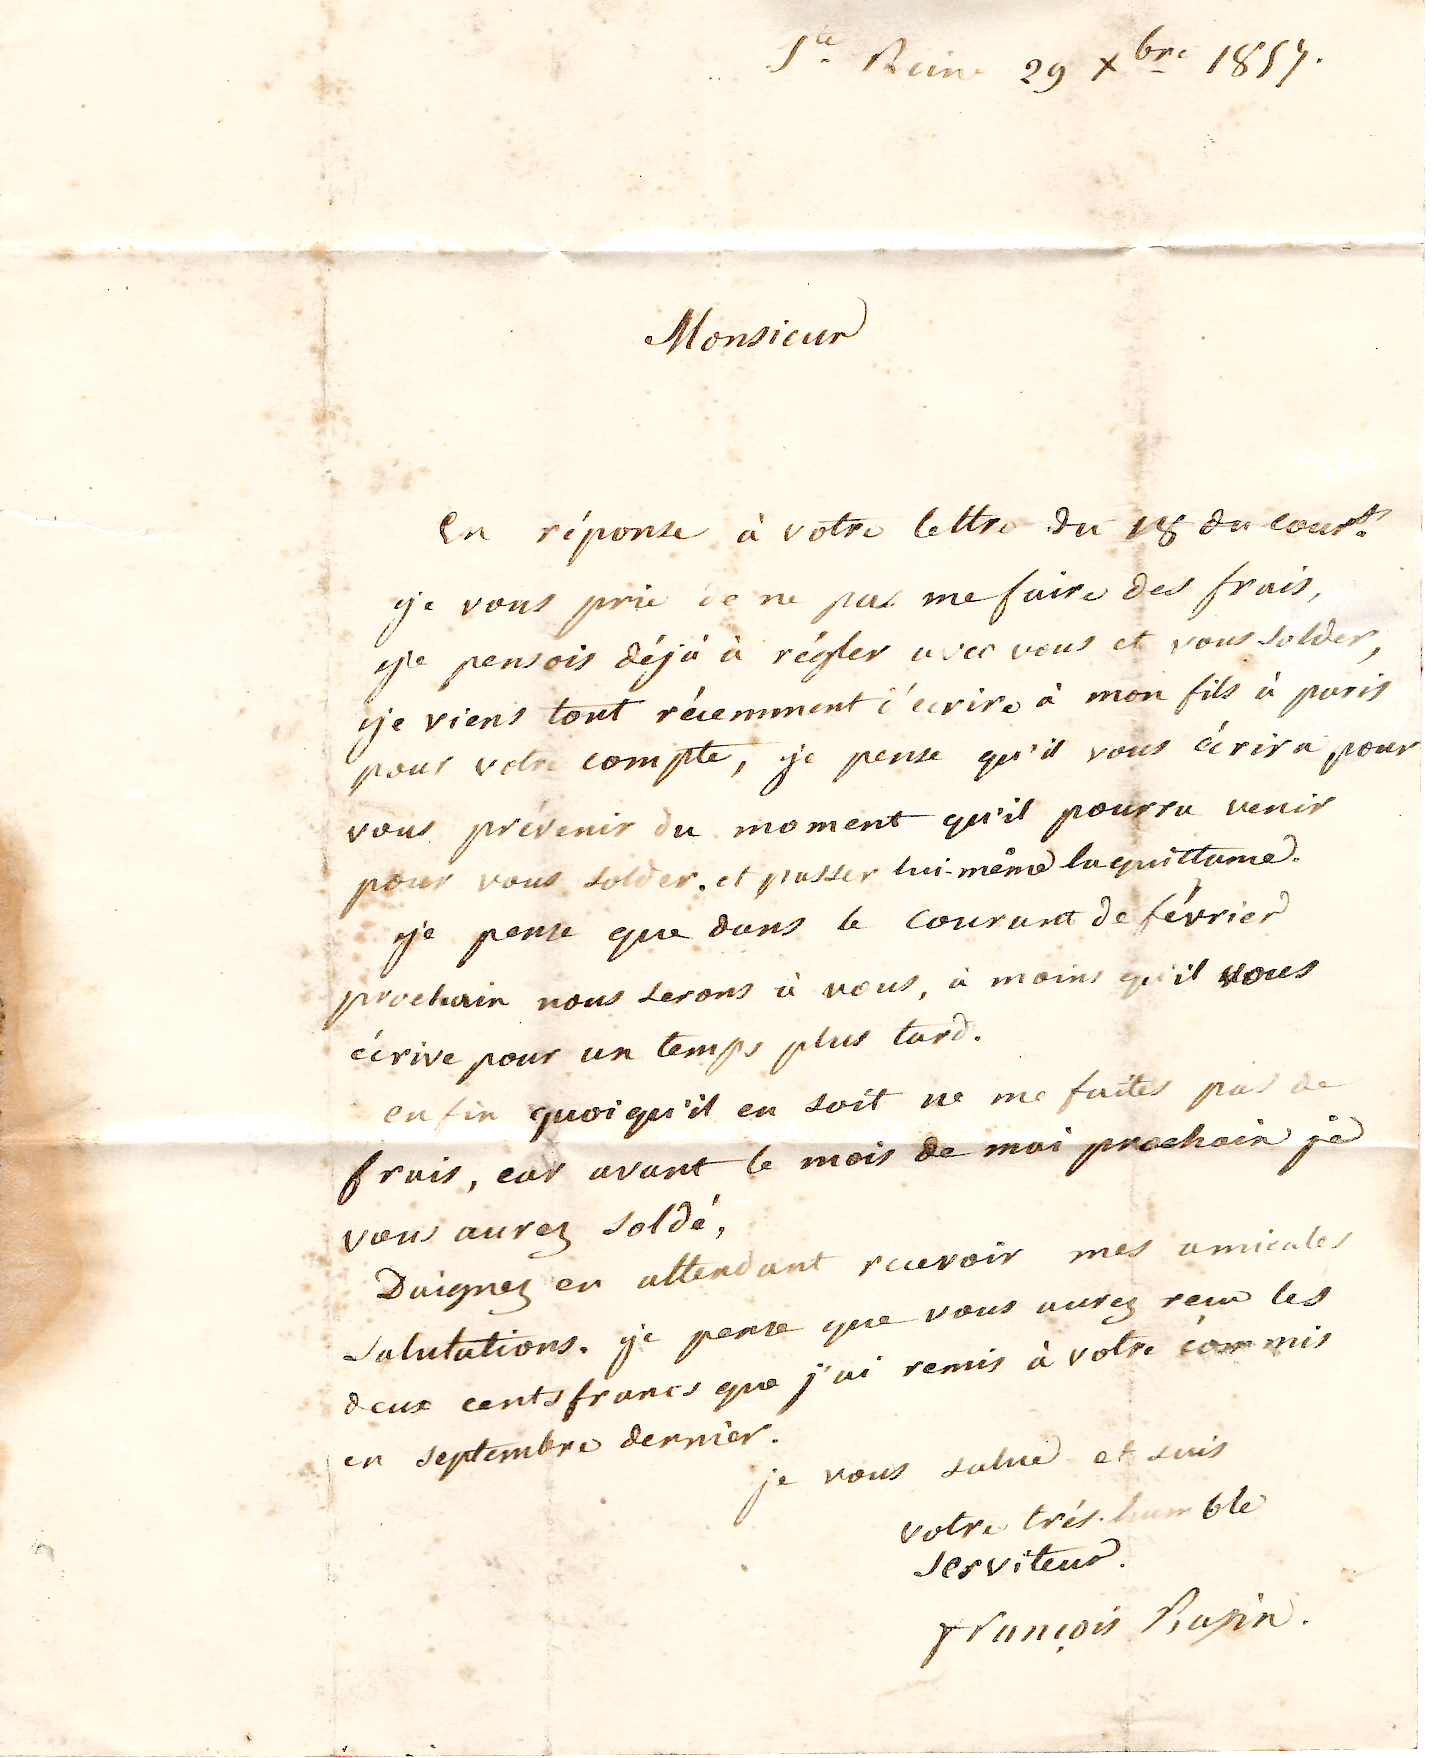 Ste Reine 29 Xbre 1857.
Monsieur
En réponse à votre lettre du 18 du court.
je vous prie de ne pas me faire des frais,
je pensois déjà à régler avec vous et vous solder,
je viens tout récemment d'écrire à mon fils à paris
pour votre compte, je pense qu'il vous écrira pour
vous prévenir du moment qu'il pourra venir
pour vous solder. et passer lui-même la quittance.
je pense que dans le courant de février
prochain nous serons à vous, à moins qu'il vous
écrive pour un temps plus tard.
enfin quoiqu'il en soit ne me faites pas de
frais, car avant le mois de mai prochain je
vous aurez soldé,
Daignez en attendant recevoir mes amicales
salutations. je pense que vous aurez reçu les
deux cents francs que j'ai remis à votre commis
en septembre dernier.
je vous salue et suis
votre trés-humble
serviteur.
François